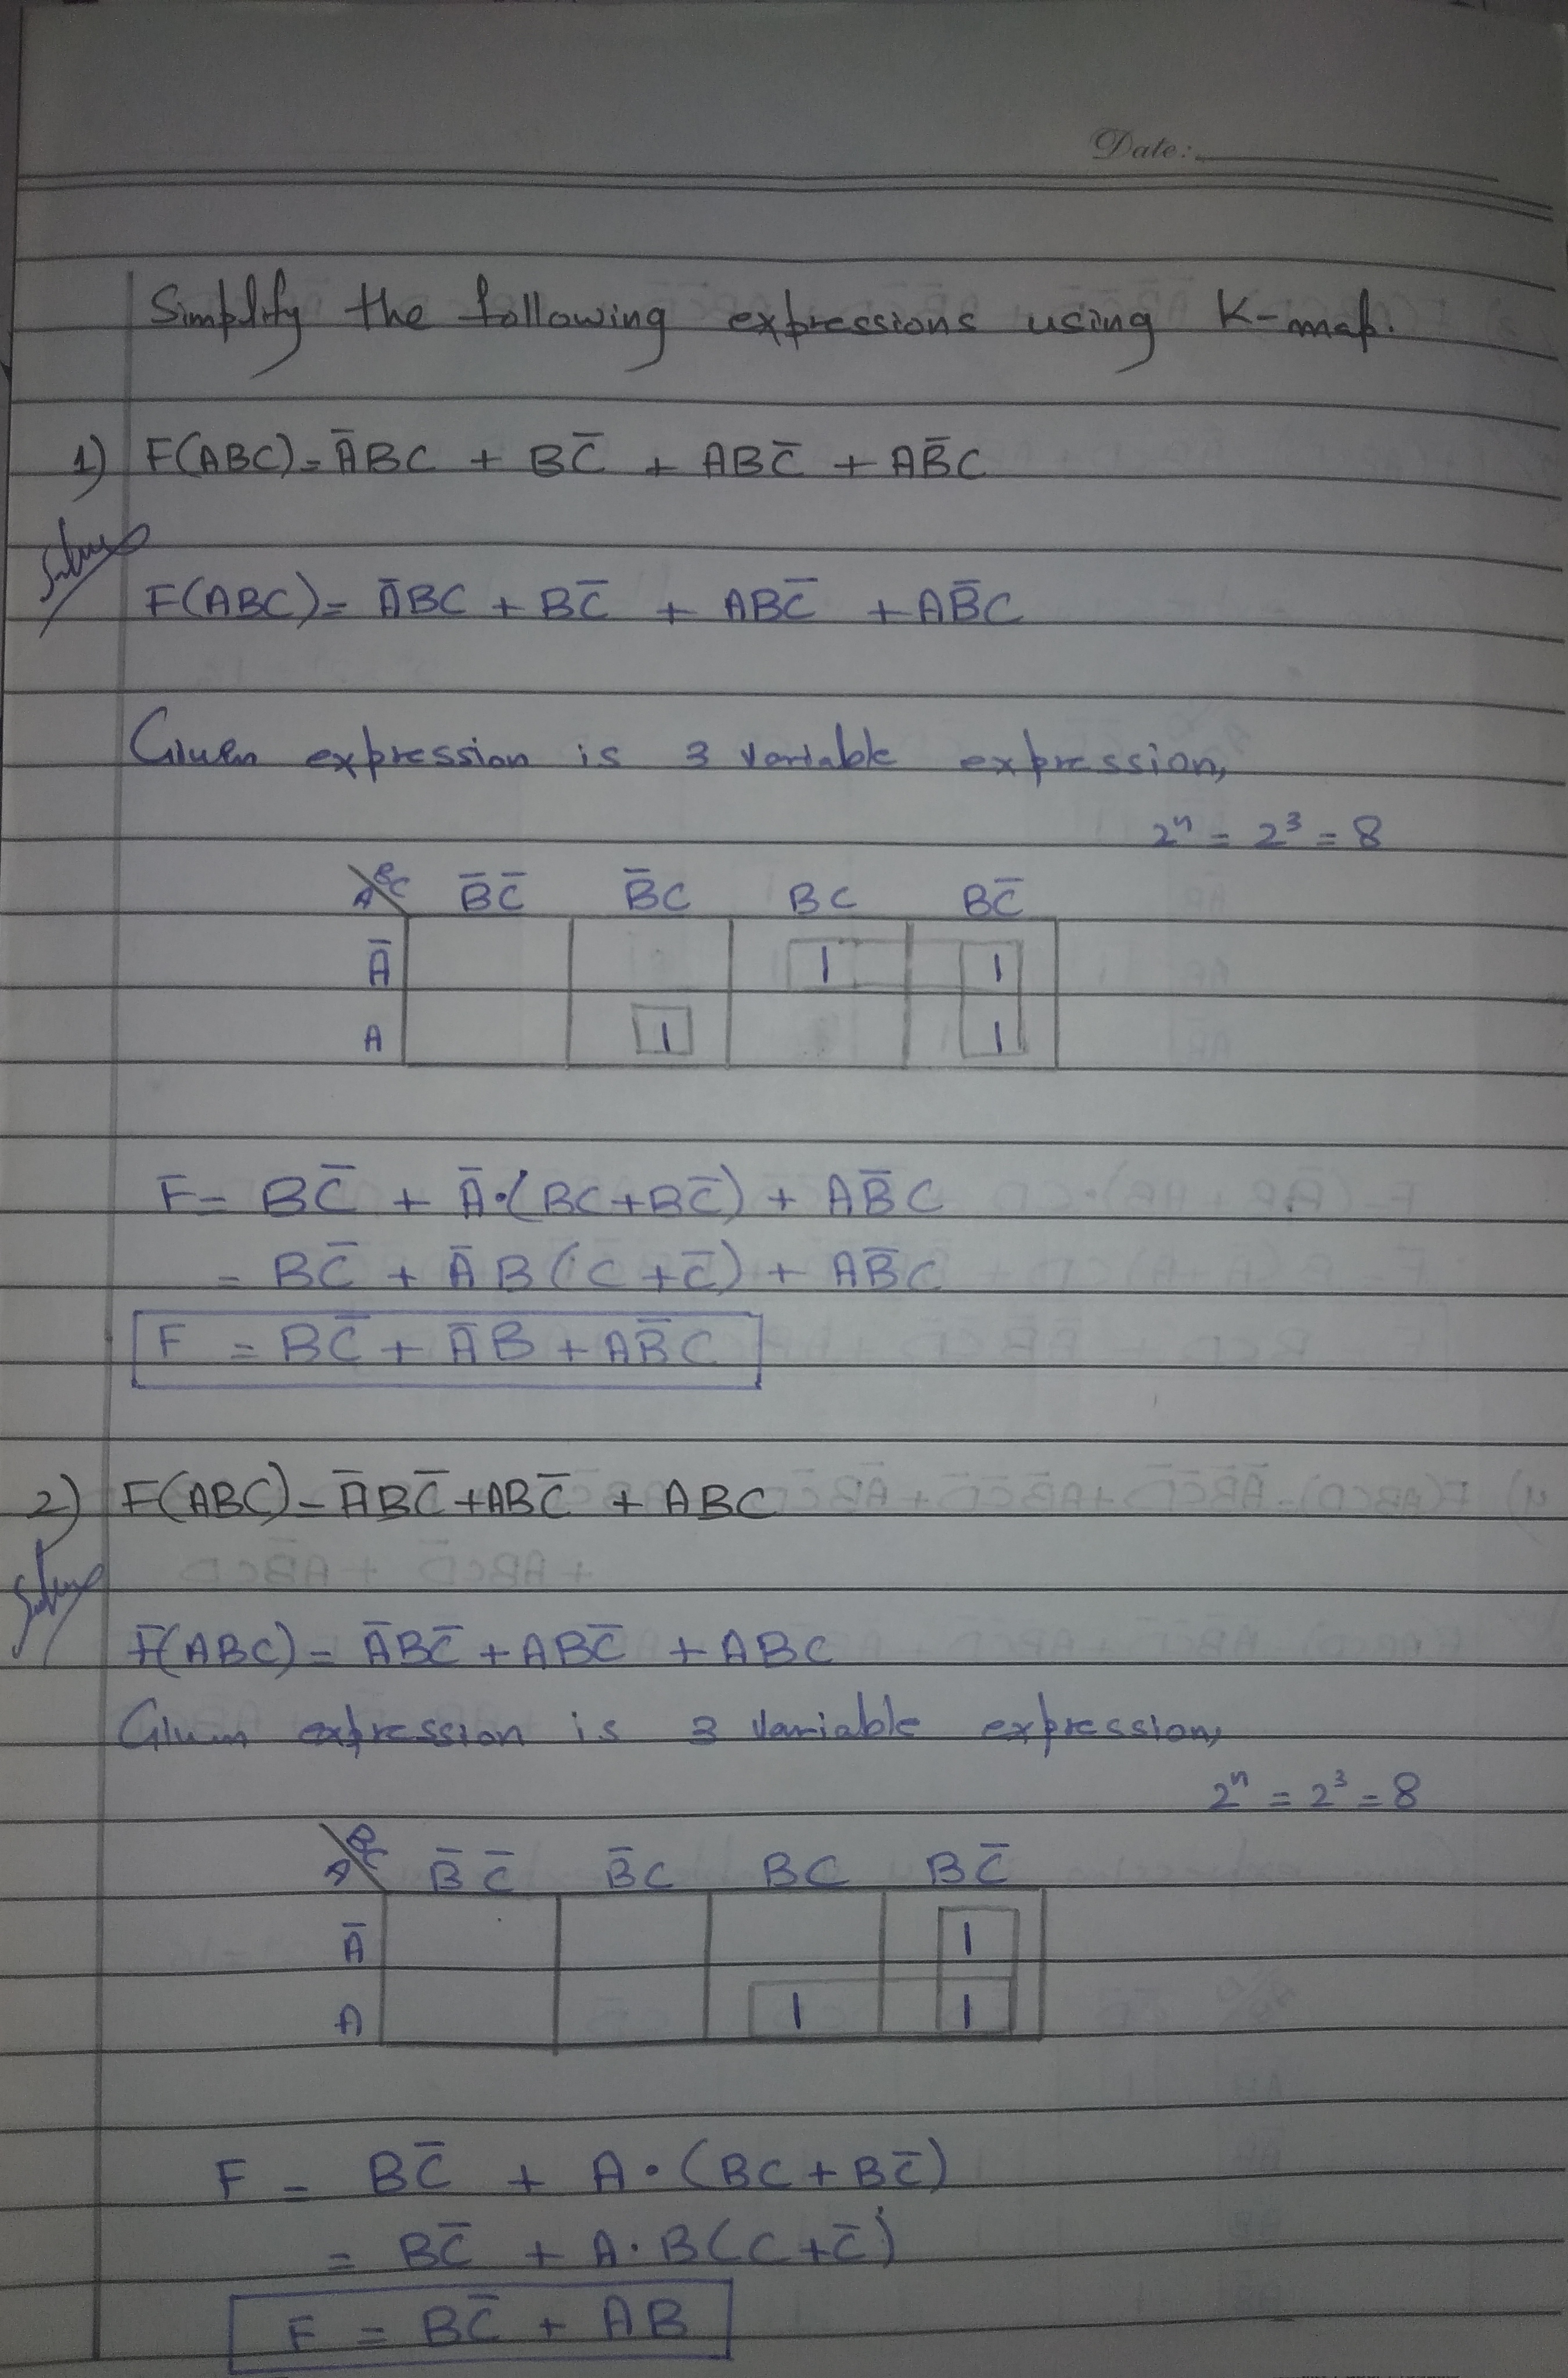 Date:
Simplify the following expressions using K-map.
1) F(ABC)= A̅BC + BC̅ + ABC̅ + AB̅C
Soln
F(ABC)= A̅BC + BC̅ + ABC̅ + AB̅C
Given expression is 3 variable expression,
2ⁿ = 2³ = 8
A BC B̅C̅ B̅C BC BC̅
A̅ 1 1
A 1 1
F = BC̅ + A̅·(BC+BC̅) + AB̅C
= BC̅ + A̅B(C+C̅) + AB̅C
F = BC̅ + A̅B + AB̅C
2) F(ABC)= A̅BC̅ + ABC̅ + ABC
Soln
F(ABC)= A̅BC̅ + ABC̅ + ABC
Given expression is 3 variable expression,
2ⁿ = 2³ = 8
A BC B̅C̅ B̅C BC BC̅
A̅ 1
A 1 1
F = BC̅ + A·(BC+BC̅)
= BC̅ + A·B(C+C̅)
F = BC̅ + AB